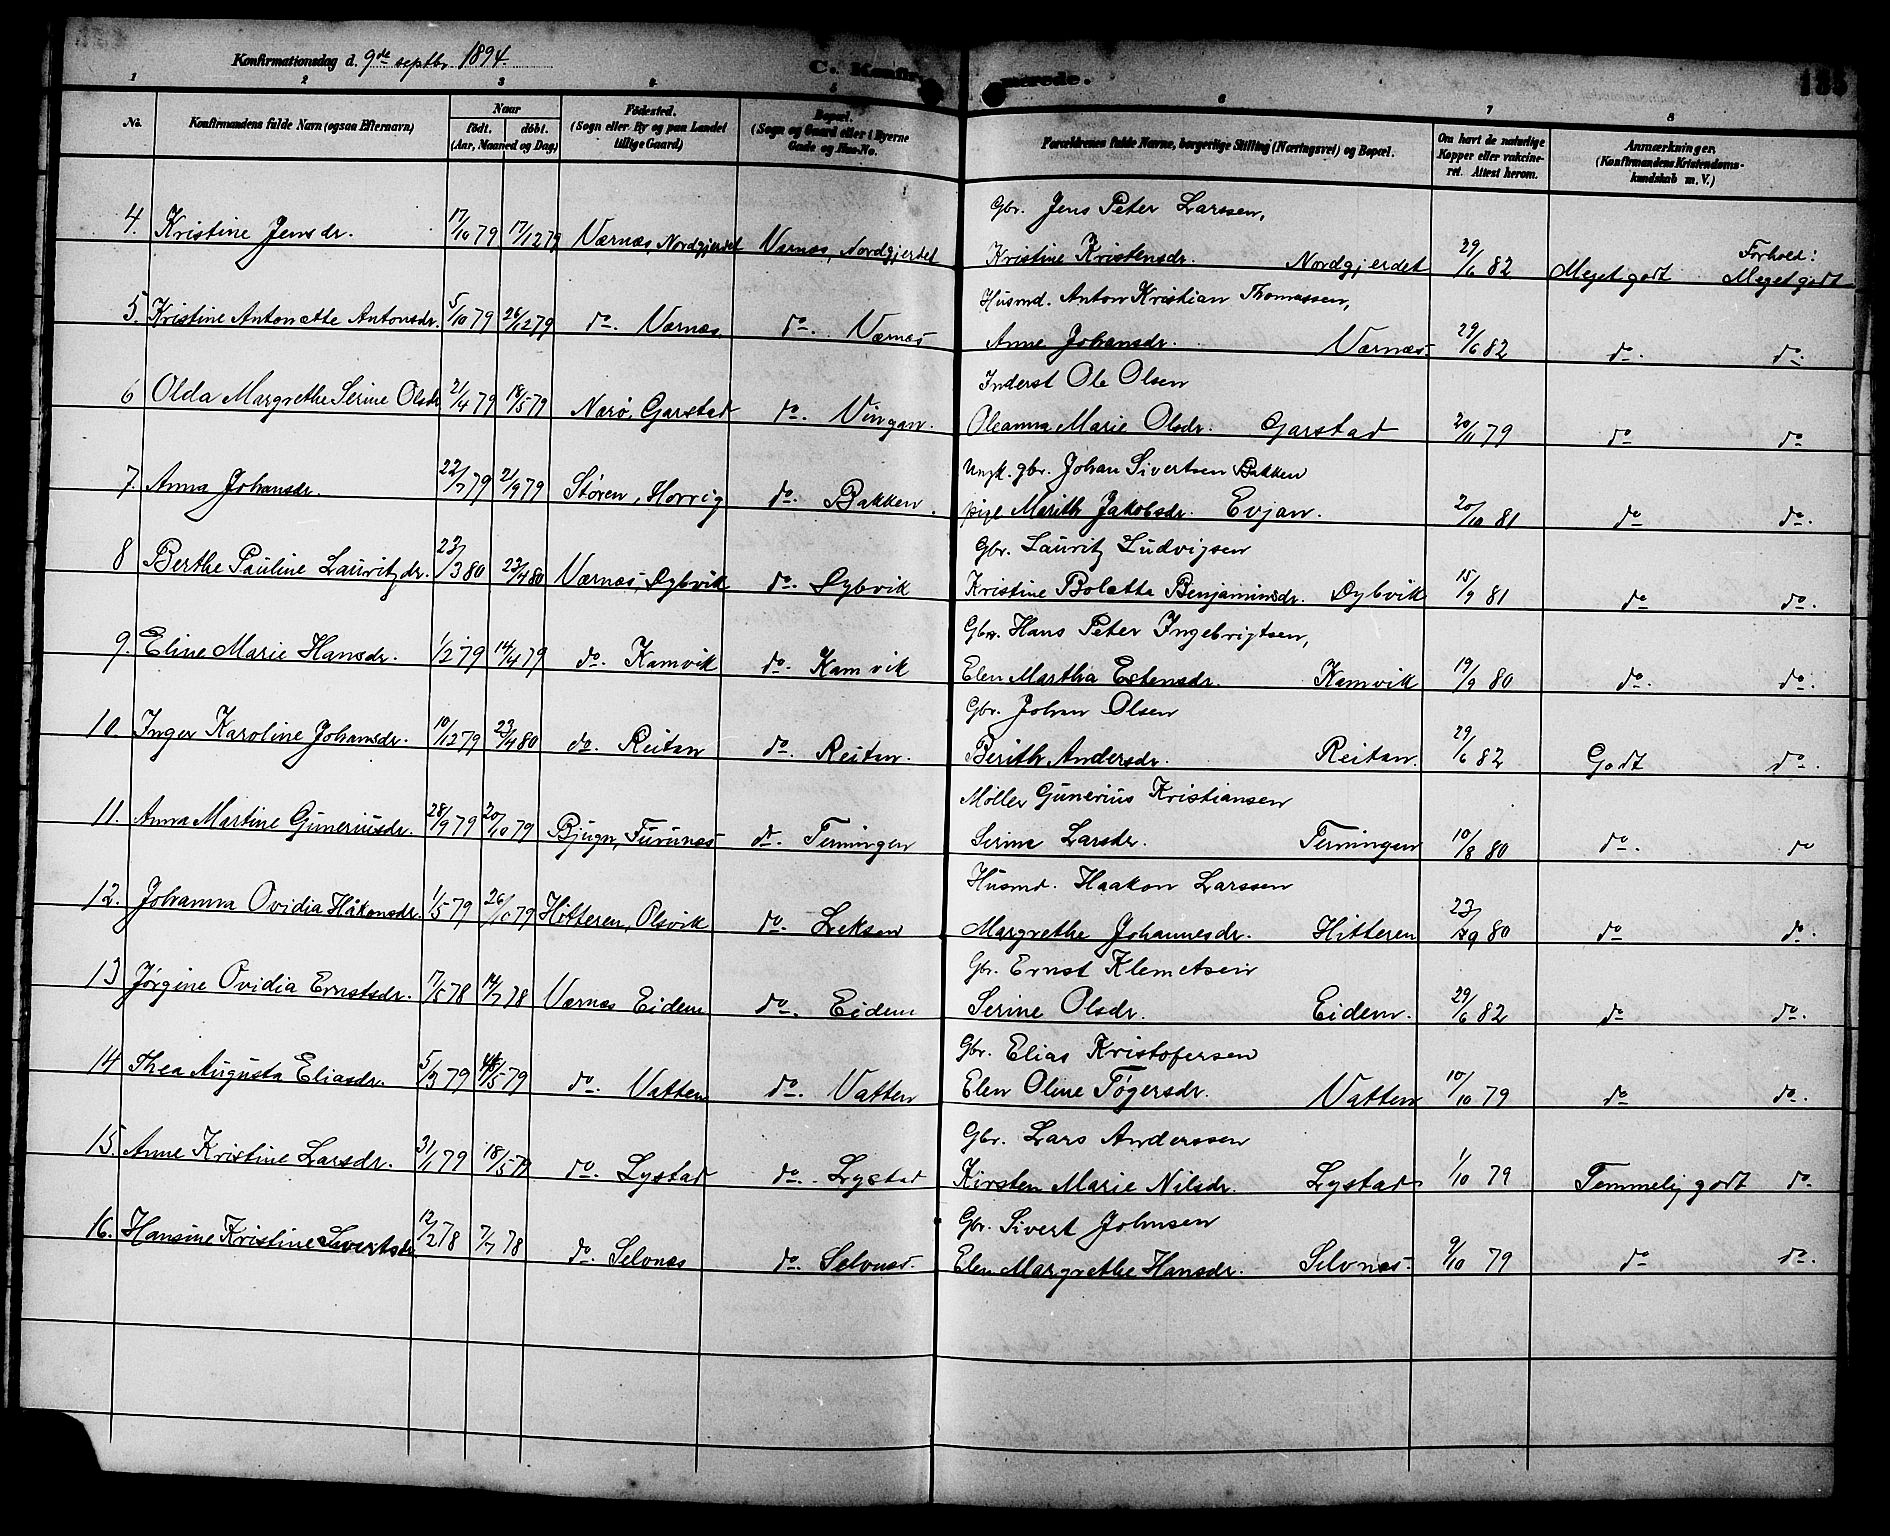 Konfirmationsdag d. 9de septbr. 1894.
C. Konfirmerede.
1 2 3 4 5 6 7 8
No. Konfirmandens fulde Navn (ogsaa Efternavn) Naar født. døbt. (Aar, Maaned og Dag) Fødested. (Sogn eller By og paa Landet tillige Gaard) Bopæl. (Sogn og Gaard eller i Byerne Gade og Hus-No. Forældrenes fulde Navne, borgerlige Stilling (Næringsvei) og Bopæl. Om havt de naturlige Kopper eller vakcineret. Attest herom. Anmærkninger. (Konfirmandens Kristendomskundskab m. V.)
Gbr. Jens Peter Larssen,
4. Kristine Jensdr. 17/10 79 17/12 79 Værnes, Nordgjerdet Værnes, Nordgjerdet Kristine Kristensdr. Nordgjerdet 29/6 82 Meget godt Forhold: Meget godt
Husmd. Anton Kristian Thomassen,
5. Kristine Antonette Antonsdr. 5/10 79 26/12 79 do. Værnes do. Værnes Anne Johansdr. Værnes 29/6 82 do. do.
Inderst Ole Olsen
6 Olda Margrethe Serine Olsdr 21/4 79 18/5 79 Nærø, Garstad do. Vingan. Oleanna Marie Olsdr. Garstad 20/11 79 do do
Ungk. gbr. Johan Sivertsen Bakken
7. Anna Johansdr. 22/7 79 2/9 79 Støren, Horrig do. Bakken. pige Marith Jakobsdr. Evjan. 20/10 81 do do.
Gbr. Lauritz Ludvigsen
8 Berthe Pauline Lauritzdr. 23/3 80 23/4 80 Værnes, Dybvik do. Dybvik Kristine Bolette Benjaminsdr. Dybvik 15/9 81 do do.
Gbr. Hans Peter Ingebrigtsen,
9. Eline Marie Hansdr. 1/2 79 14/4 79 do. Kamvik do. Kamvik Elen Martha Estensdr. Kamvik 19/9 80 do. do.
Gbr. Johan Olsen
10. Inger Karoline Johansdr. 10/12 79 23/4 80 do. Reitan do. Reitan. Berith Andersdr. Reitan. 29/6 82 Godt do.
Møller Gunerius Kristiansen
11. Anna Martine Guneriusdr. 28/9 79 20/10 79 Bjugn, Furunes do. Terningen Serine Larsdr. Terningen 10/8 80 do. do
Husmd. Haakon Larssen
12. Johanna Ovidia Håkonsdr. 1/5 79 Hitteren, Olsvik do. Leksen Margrethe Johannesdr. Hitteren 23/9 80 do do.
Gbr. Ernst Klemetsen
13 Jørgine Ovidia Ernstsdr. 17/5 78 14/7 78 Værnes Eidem do. Eidem Serine Olsdr. Eidem. 29/6 82 do do.
Gbr. Elias Kristofersen
14 Thea Augusta Eliasdr. 5/3 79 do. Vatten do. Vatten Elen Oline Tøgersdr. Vatten 10/10 79 do do.
Gbr. Lars Anderssen
15. Anne Kristine Larsdr. 31/1 79 18/5 79 do. Lystad do. Lystad Kirsten Marie Nilsdr. Lystad 1/10 79 Temmelig godt do
Gbr. Sivert Johnsen
16. Hansine Kristine Sivertsdr 12/2 78 7/7 78 do. Selvnes do. Selvnes. Elen Margrethe Hansdr. Selvnes. 9/10 79 do do.